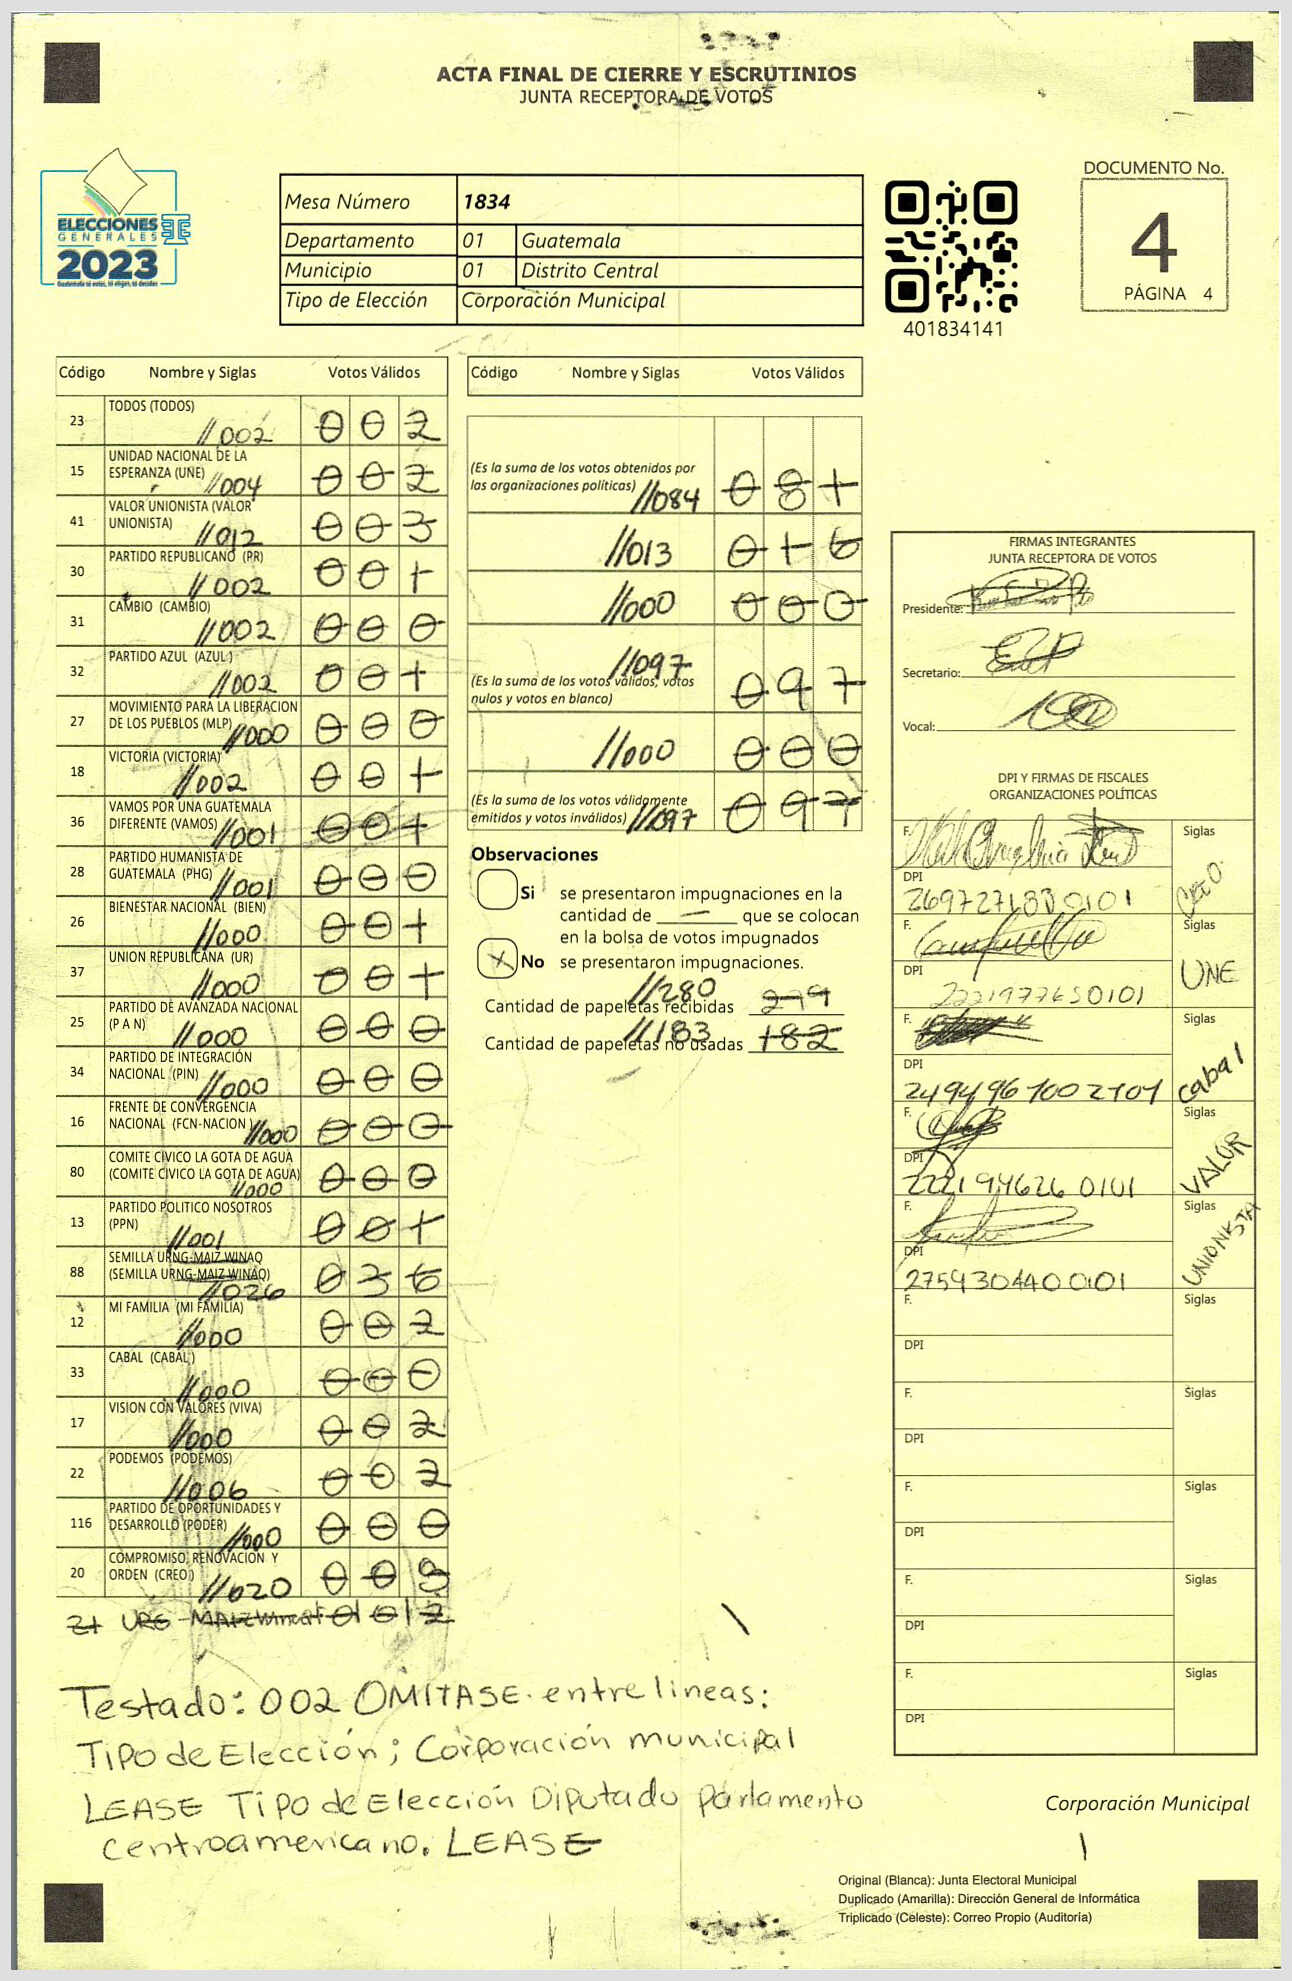 ACTA FINAL DE CIERRE Y ESCRUTINIOS
JUNTA RECEPTORA DE VOTOS
ELECCIONES
GENERALES
2023
Mesa Número 1834
Departamento 01 Guatemala
Municipio 01 Distrito Central
Tipo de Elección Corporación Municipal
401834141
DOCUMENTO No.
4
PÁGINA 4
Código Nombre y Siglas Votos Válidos
23 TODOS (TODOS) //002 0 0 2
15 UNIDAD NACIONAL DE LA
ESPERANZA (UNE) //004 0 0 2
41 VALOR UNIONISTA (VALOR
UNIONISTA) //012 0 0 3
30 PARTIDO REPUBLICANO (PR) //002 0 0 1
31 CAMBIO (CAMBIO) //002 0 0 0
32 PARTIDO AZUL (AZUL) //002 0 0 1
27 MOVIMIENTO PARA LA LIBERACION
DE LOS PUEBLOS (MLP) //000 0 0 0
18 VICTORIA (VICTORIA) //002 0 0 1
36 VAMOS POR UNA GUATEMALA
DIFERENTE (VAMOS) //001 0 0 1
28 PARTIDO HUMANISTA DE
GUATEMALA (PHG) //001 0 0 0
26 BIENESTAR NACIONAL (BIEN) //000 0 0 1
37 UNION REPUBLICANA (UR) //000 0 0 1
25 PARTIDO DE AVANZADA NACIONAL
(P A N) //000 0 0 0
34 PARTIDO DE INTEGRACIÓN
NACIONAL (PIN) //000 0 0 0
16 FRENTE DE CONVERGENCIA
NACIONAL (FCN-NACION) //000 0 0 0
80 COMITE CIVICO LA GOTA DE AGUA
(COMITE CIVICO LA GOTA DE AGUA) //000 0 0 0
13 PARTIDO POLITICO NOSOTROS
(PPN) //001 0 0 1
88 SEMILLA URNG-MAIZ WINAQ
(SEMILLA URNG-MAIZ WINAQ) //026 0 3 6
12 MI FAMILIA (MI FAMILIA) //000 0 0 2
33 CABAL (CABAL) //000 0 0 0
17 VISION CON VALORES (VIVA) //000 0 0 2
22 PODEMOS (PODEMOS) //006 0 0 2
116 PARTIDO DE OPORTUNIDADES Y
DESARROLLO (PODER) //000 0 0 0
20 COMPROMISO, RENOVACION Y
ORDEN (CREO) //020 0 0 9
21 URG - MAIZ Winaq 0 0 2
Código Nombre y Siglas Votos Válidos
(Es la suma de los votos obtenidos por
las organizaciones políticas) //084 0 8 1
//013 0 1 6
//000 0 0 0
//097
(Es la suma de los votos válidos, votos
nulos y votos en blanco) 0 9 7
//000 0 0 0
(Es la suma de los votos válidamente
emitidos y votos inválidos) //097 0 97
Observaciones
Si se presentaron impugnaciones en la
cantidad de — que se colocan
en la bolsa de votos impugnados
X No se presentaron impugnaciones.
//280
Cantidad de papeletas recibidas 279
//183
Cantidad de papeletas no usadas 182
FIRMAS INTEGRANTES
JUNTA RECEPTORA DE VOTOS
Presidente:
Secretario:
Vocal:
DPI Y FIRMAS DE FISCALES
ORGANIZACIONES POLÍTICAS
F. Siglas
DPI
2697271830101 CREO
F. Siglas
DPI
2221977650101 UNE
F. Siglas
DPI
2494961002101 Cabal
F. Siglas
DPI
2221946260101 VALOR
F. Siglas
DPI
2759304400101 UNIONISTA
F. Siglas
DPI
F. Siglas
DPI
F. Siglas
DPI
F. Siglas
DPI
F. Siglas
DPI
Testado: 002 OMITASE. entre lineas:
Tipo de Elección; Corporación municipal
LEASE Tipo de Elección Diputado parlamento
Centroamericano. LEASE
Corporación Municipal
Original (Blanca): Junta Electoral Municipal
Duplicado (Amarilla): Dirección General de Informática
Triplicado (Celeste): Correo Propio (Auditoría)